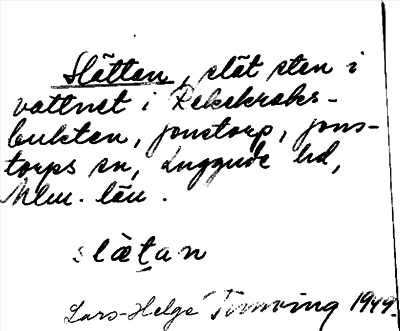 Slättan, slät sten i
vattnet i Rekekroks-
bukten, Jonstorp, Jons-
torps sn, Luggude hd,
Mlm. län.
slätan
Lars-Helge 1949.